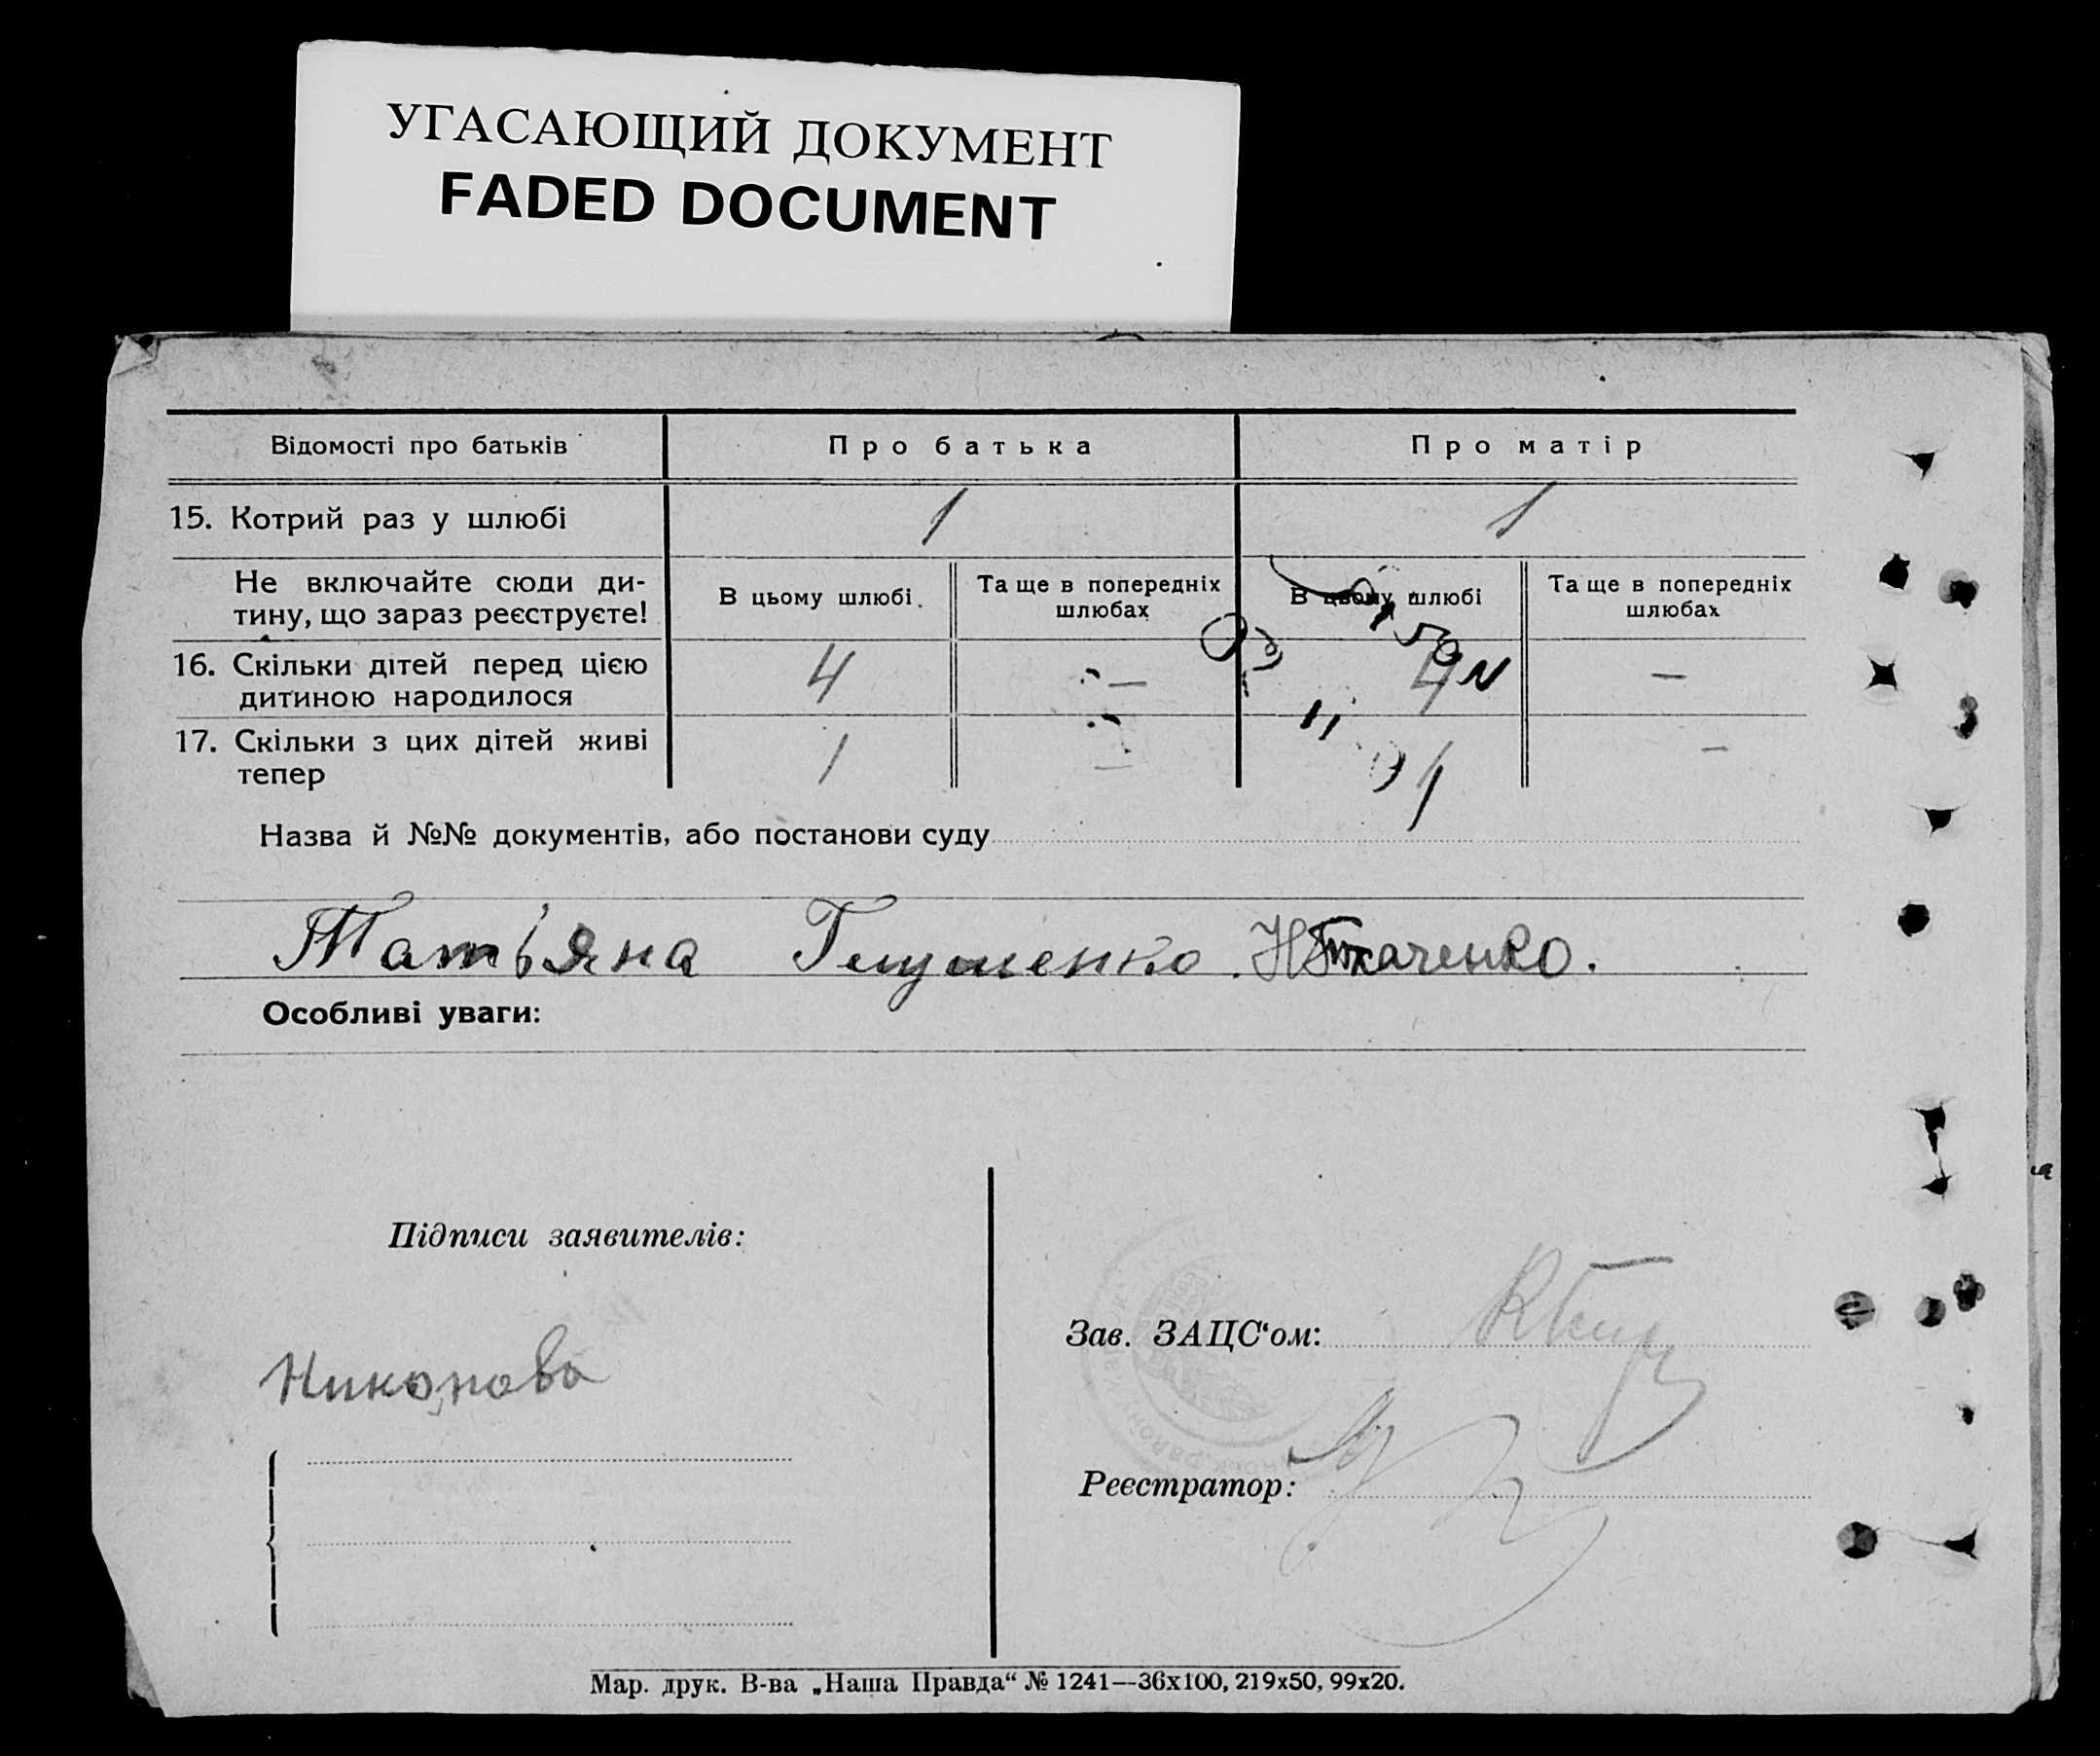 УГАСАЮЩИЙ ДОКУМЕНТ
FADED DOCUMENT
Відомості про батьків
Про батька
Про матір
15. Котрий раз у шлюбі
1
1
Не включайте сюди ди-
тину, що зараз реєструєте!
В цьому шлюбі
Та ще в попередніх
шлюбах
В цьому шлюбі
Та ще в попередніх
шлюбах
16. Скільки дітей перед цією
дитиною народилося
4
—
4
—
17. Скільки з цих дітей живі
тепер
1
—
1
—
Назва й №№ документів, або постанови суду
Тать'яна Глущенко. Ткаченко.
Особливі уваги:
Підписи заявителів:
Зав. ЗАЦС‘ом:
Реєстратор:
Мар. друк. В-ва „Наша Правда“ № 1241—36х100, 219х50, 99х20.